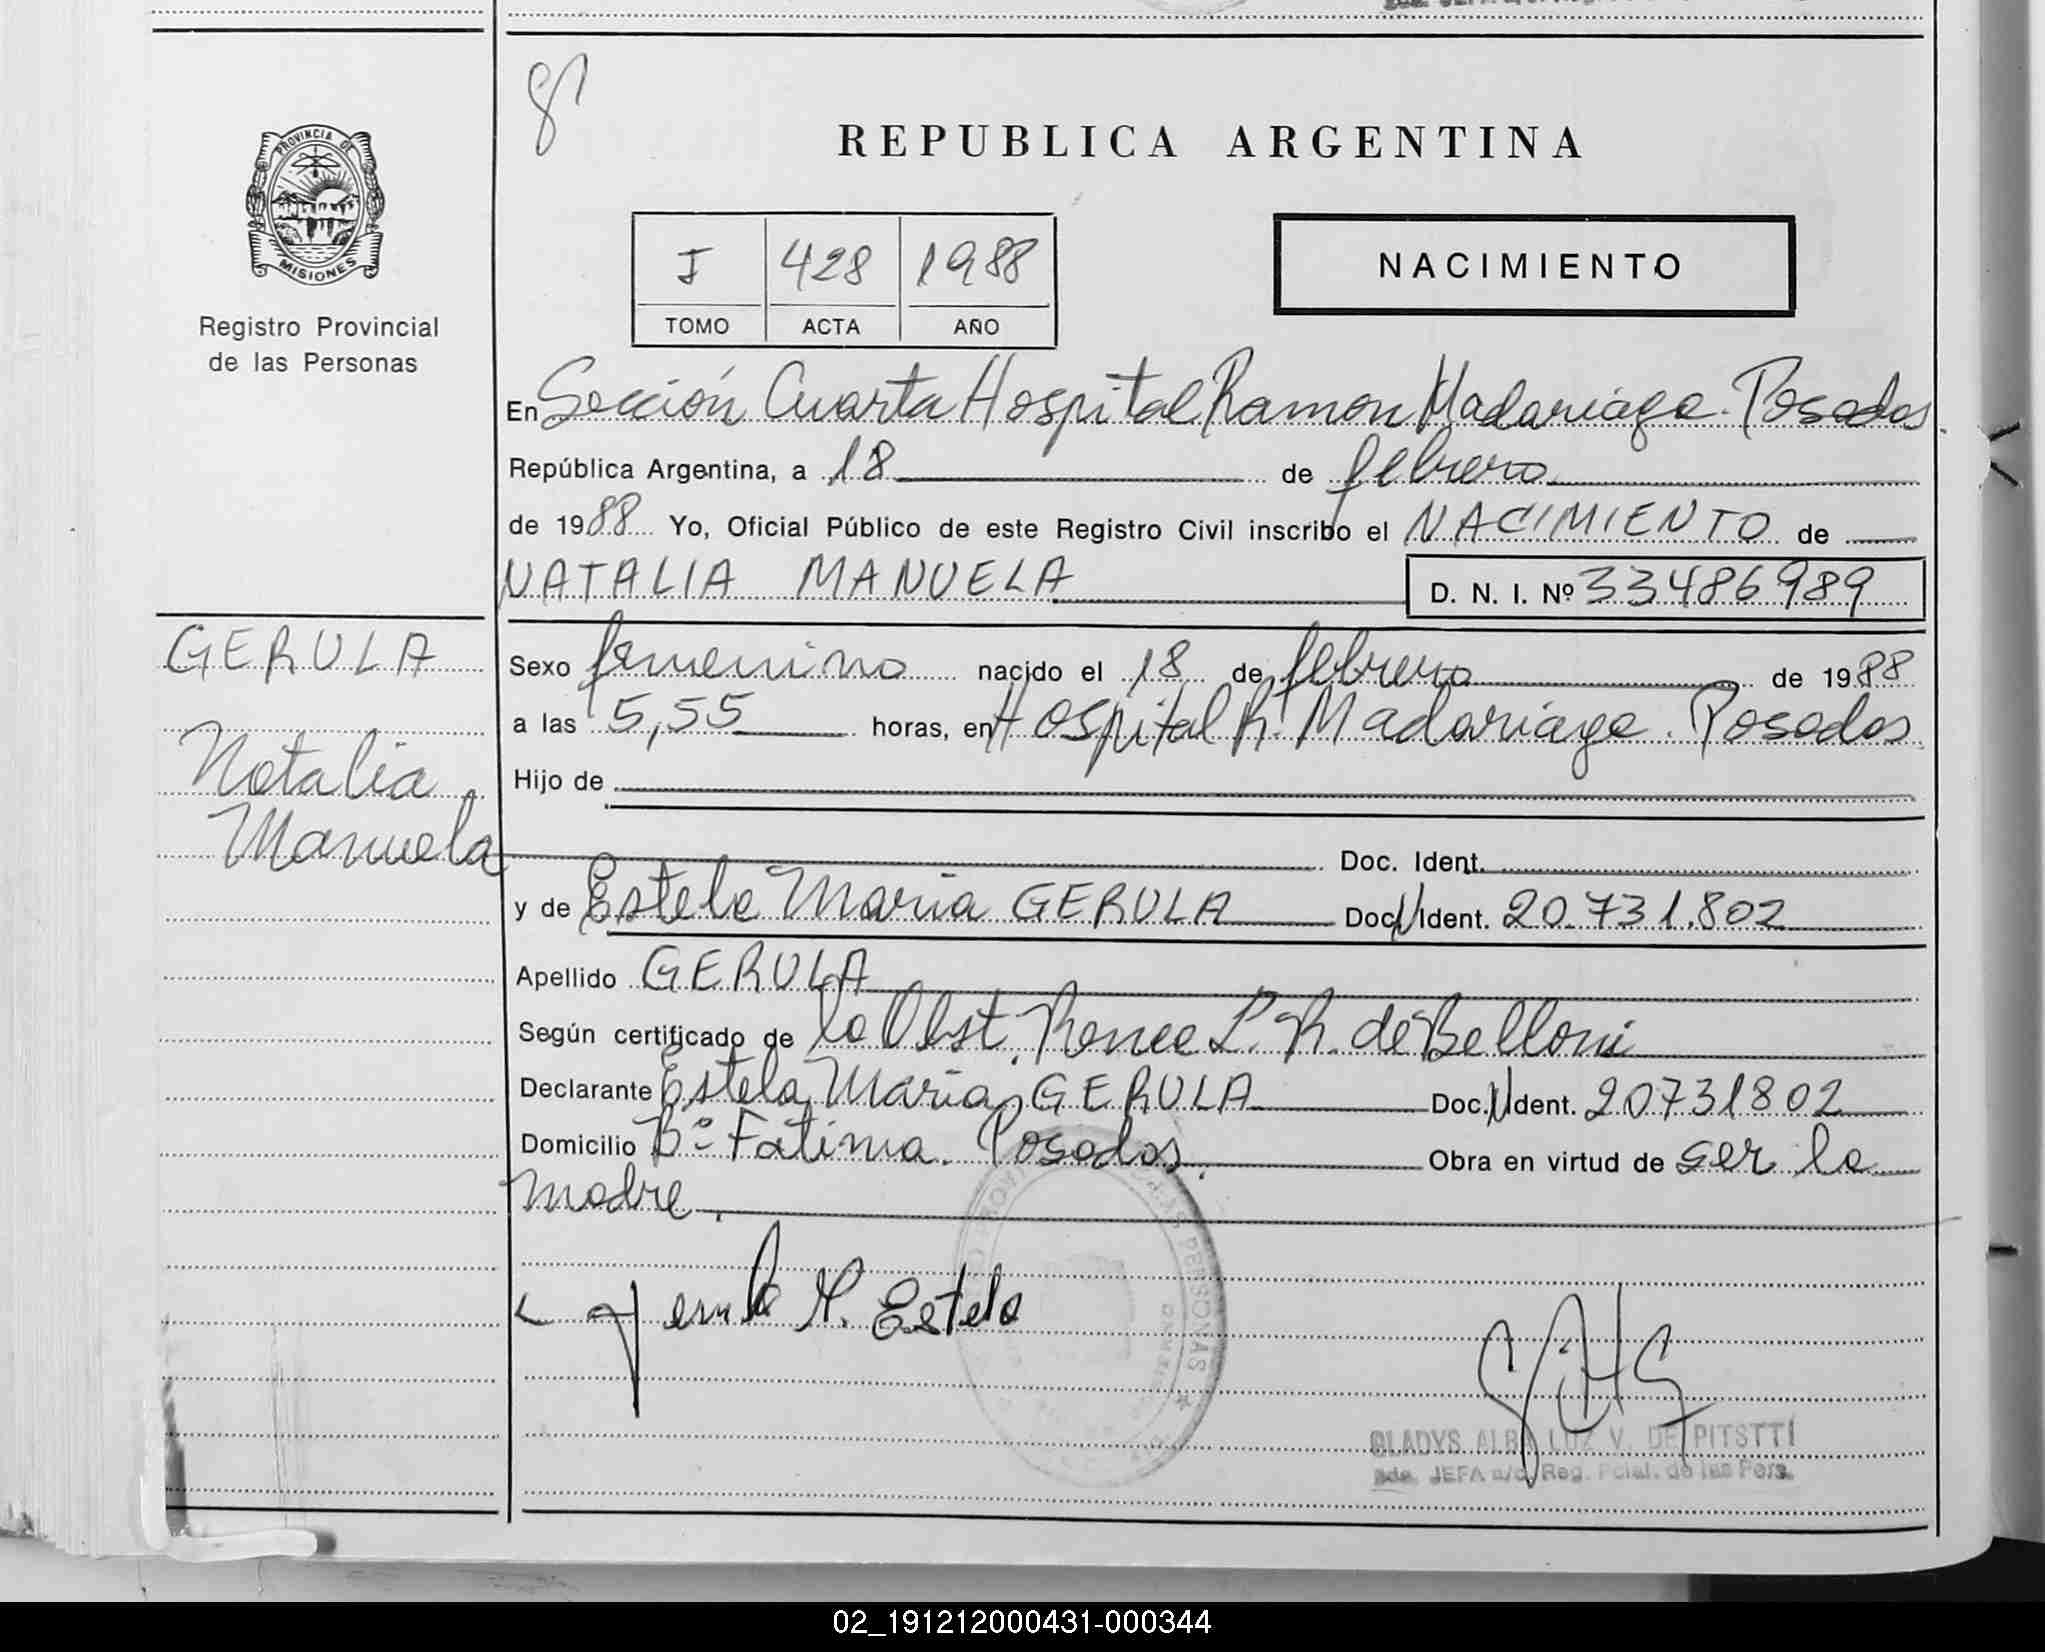 REPUBLICA ARGENTINA
PROVINCIA DE
MISIONES
Registro Provincial
de las Personas
I 428 1988
TOMO ACTA AÑO
NACIMIENTO
En Sección Cuarta Hospital Ramon Madariaga. Posadas
República Argentina, a 18 de febrero
de 1988 Yo, Oficial Público de este Registro Civil inscribo el NACIMIENTO de
NATALIA MANUELA D. N. I. Nº 33486989
GERULA
Natalia
Manuela
Sexo femenino nacido el 18 de febrero de 1988
a las 5,55 horas, en Hospital R. Madariaga. Posadas
Hijo de
Doc. Ident.
y de Estela Maria GERULA Doc. N Ident. 20.731.802
Apellido GERULA
Según certificado de la Obst. Renee L. R. de Belloni
Declarante Estela Maria GERULA Doc. N Ident. 20731802
Domicilio Bº Fatima. Posadas. Obra en virtud de ser la
madre.
Gerula M. Estela
PERSONAS
GLADYS ALBA LUZ V. DE PITSTTI
JEFA a/c. Reg. Pcial. de las Pers.
02_191212000431-000344